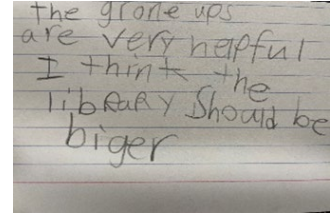 the grone ups
are very helpful
I think the
libRaRY Should be
biger